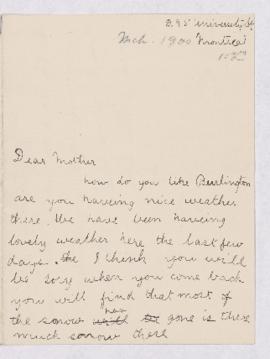 University St
Mch. 1900 Montreal
Dear Mother
how do you like Burlington
are you haveing nice weather
there. We have been haveing
lovely weather here the last few
days. I think you will
be sory when you come back
you will find that most of
the snow has gone is there
much snow there